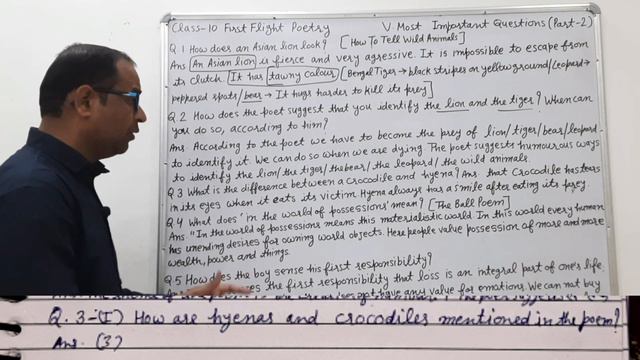 Class-10 First Flight Poetry V Most Important Questions (Part-2)
Q.1 How does an Asian lion look? [How To Tell Wild Animals]
Ans An Asian lion is fierce and very agressive. It is impossible to escape from
its clutch. It has tawny colour (Bengal Tiger→ black stripes on yellow ground/Leopard→
peppered spots/bear→ It hugs harder to kill its prey]
Q.2 How does the poet suggest that you identify the lion and the tiger? When can
you do so, according to him?
Ans. According to the poet we have to become the prey of lion/tiger/bear/leopard
to identify it. We can do so when we are dying. The poet suggests humourous ways
to identify the lion/the tiger/the bear/the leopard/the wild animals.
Q.3 What is the difference between a crocodile and hyena? Ans. that Crocodile has tears
in its eyes when it eats its victim. Hyena always has a smile after eating its prey.
Q.4 What does 'in the world of possessions' mean? [The Ball Poem]
Ans. "In the world of possessions means this materialistic world. In this world every human
has unending desires for owning world objects. Here people value possession of more and more
wealth, power and things.
Q.5 How does the boy sense his first responsibility?
the first responsibility that loss is an integral part of one's life.
have any value for emotions. We can not buy
Q. 3-(I) How are hyenas and crocodiles mentioned in the poem?
Ans. (3)